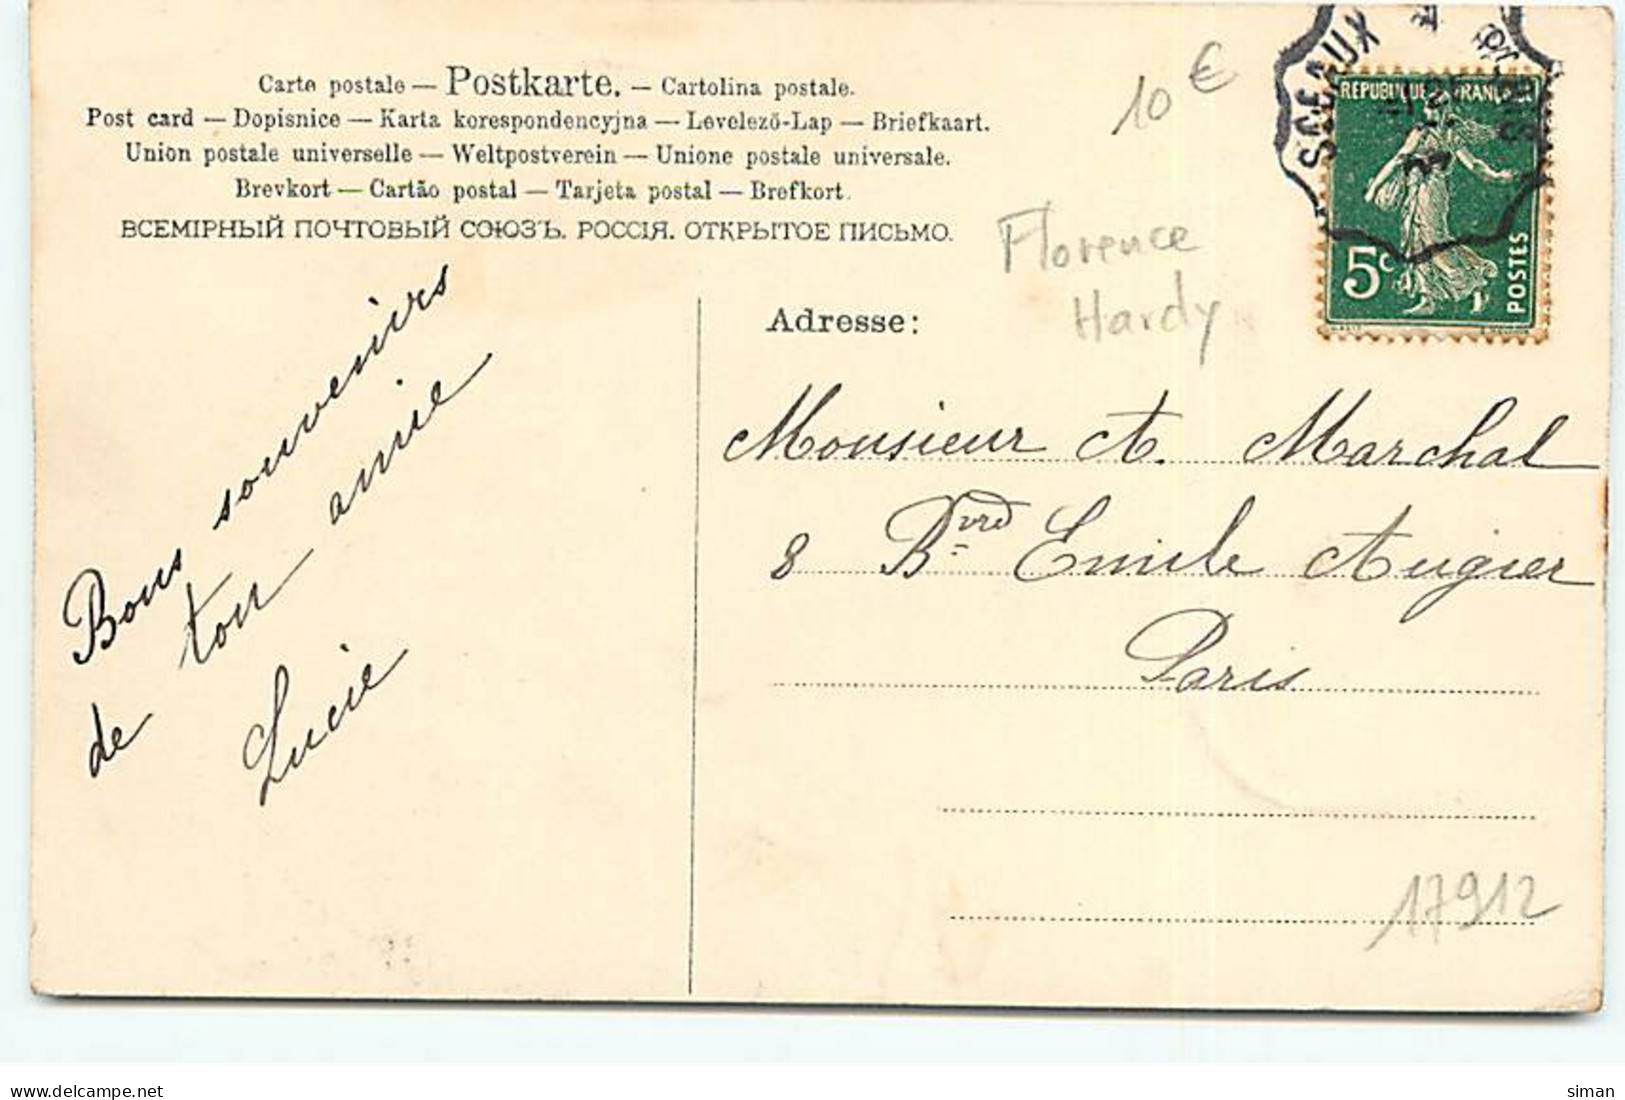 Carte postale — Postkarte. — Cartolina postale.
Post card — Dopisnice — Karta korespondencyjna — Levelező-Lap — Briefkaart.
Union postale universelle — Weltpostverein — Unione postale universale.
Brevkort — Cartão postal — Tarjeta postal — Brefkort.
ВСЕМІРНЫЙ ПОЧТОВЫЙ СОЮЗЪ. РОССІЯ. ОТКРЫТОЕ ПИСЬМО.
10 €
SCEAUX
REPUBLIQUE FRANÇAISE
5c
POSTES
Florence
Hardy
Adresse:
Monsieur A. Marchal
8 Bvrd Emile Augier
Paris
Bons souvenirs
de ton amie
Lucie
17912
delcampe.net
siman